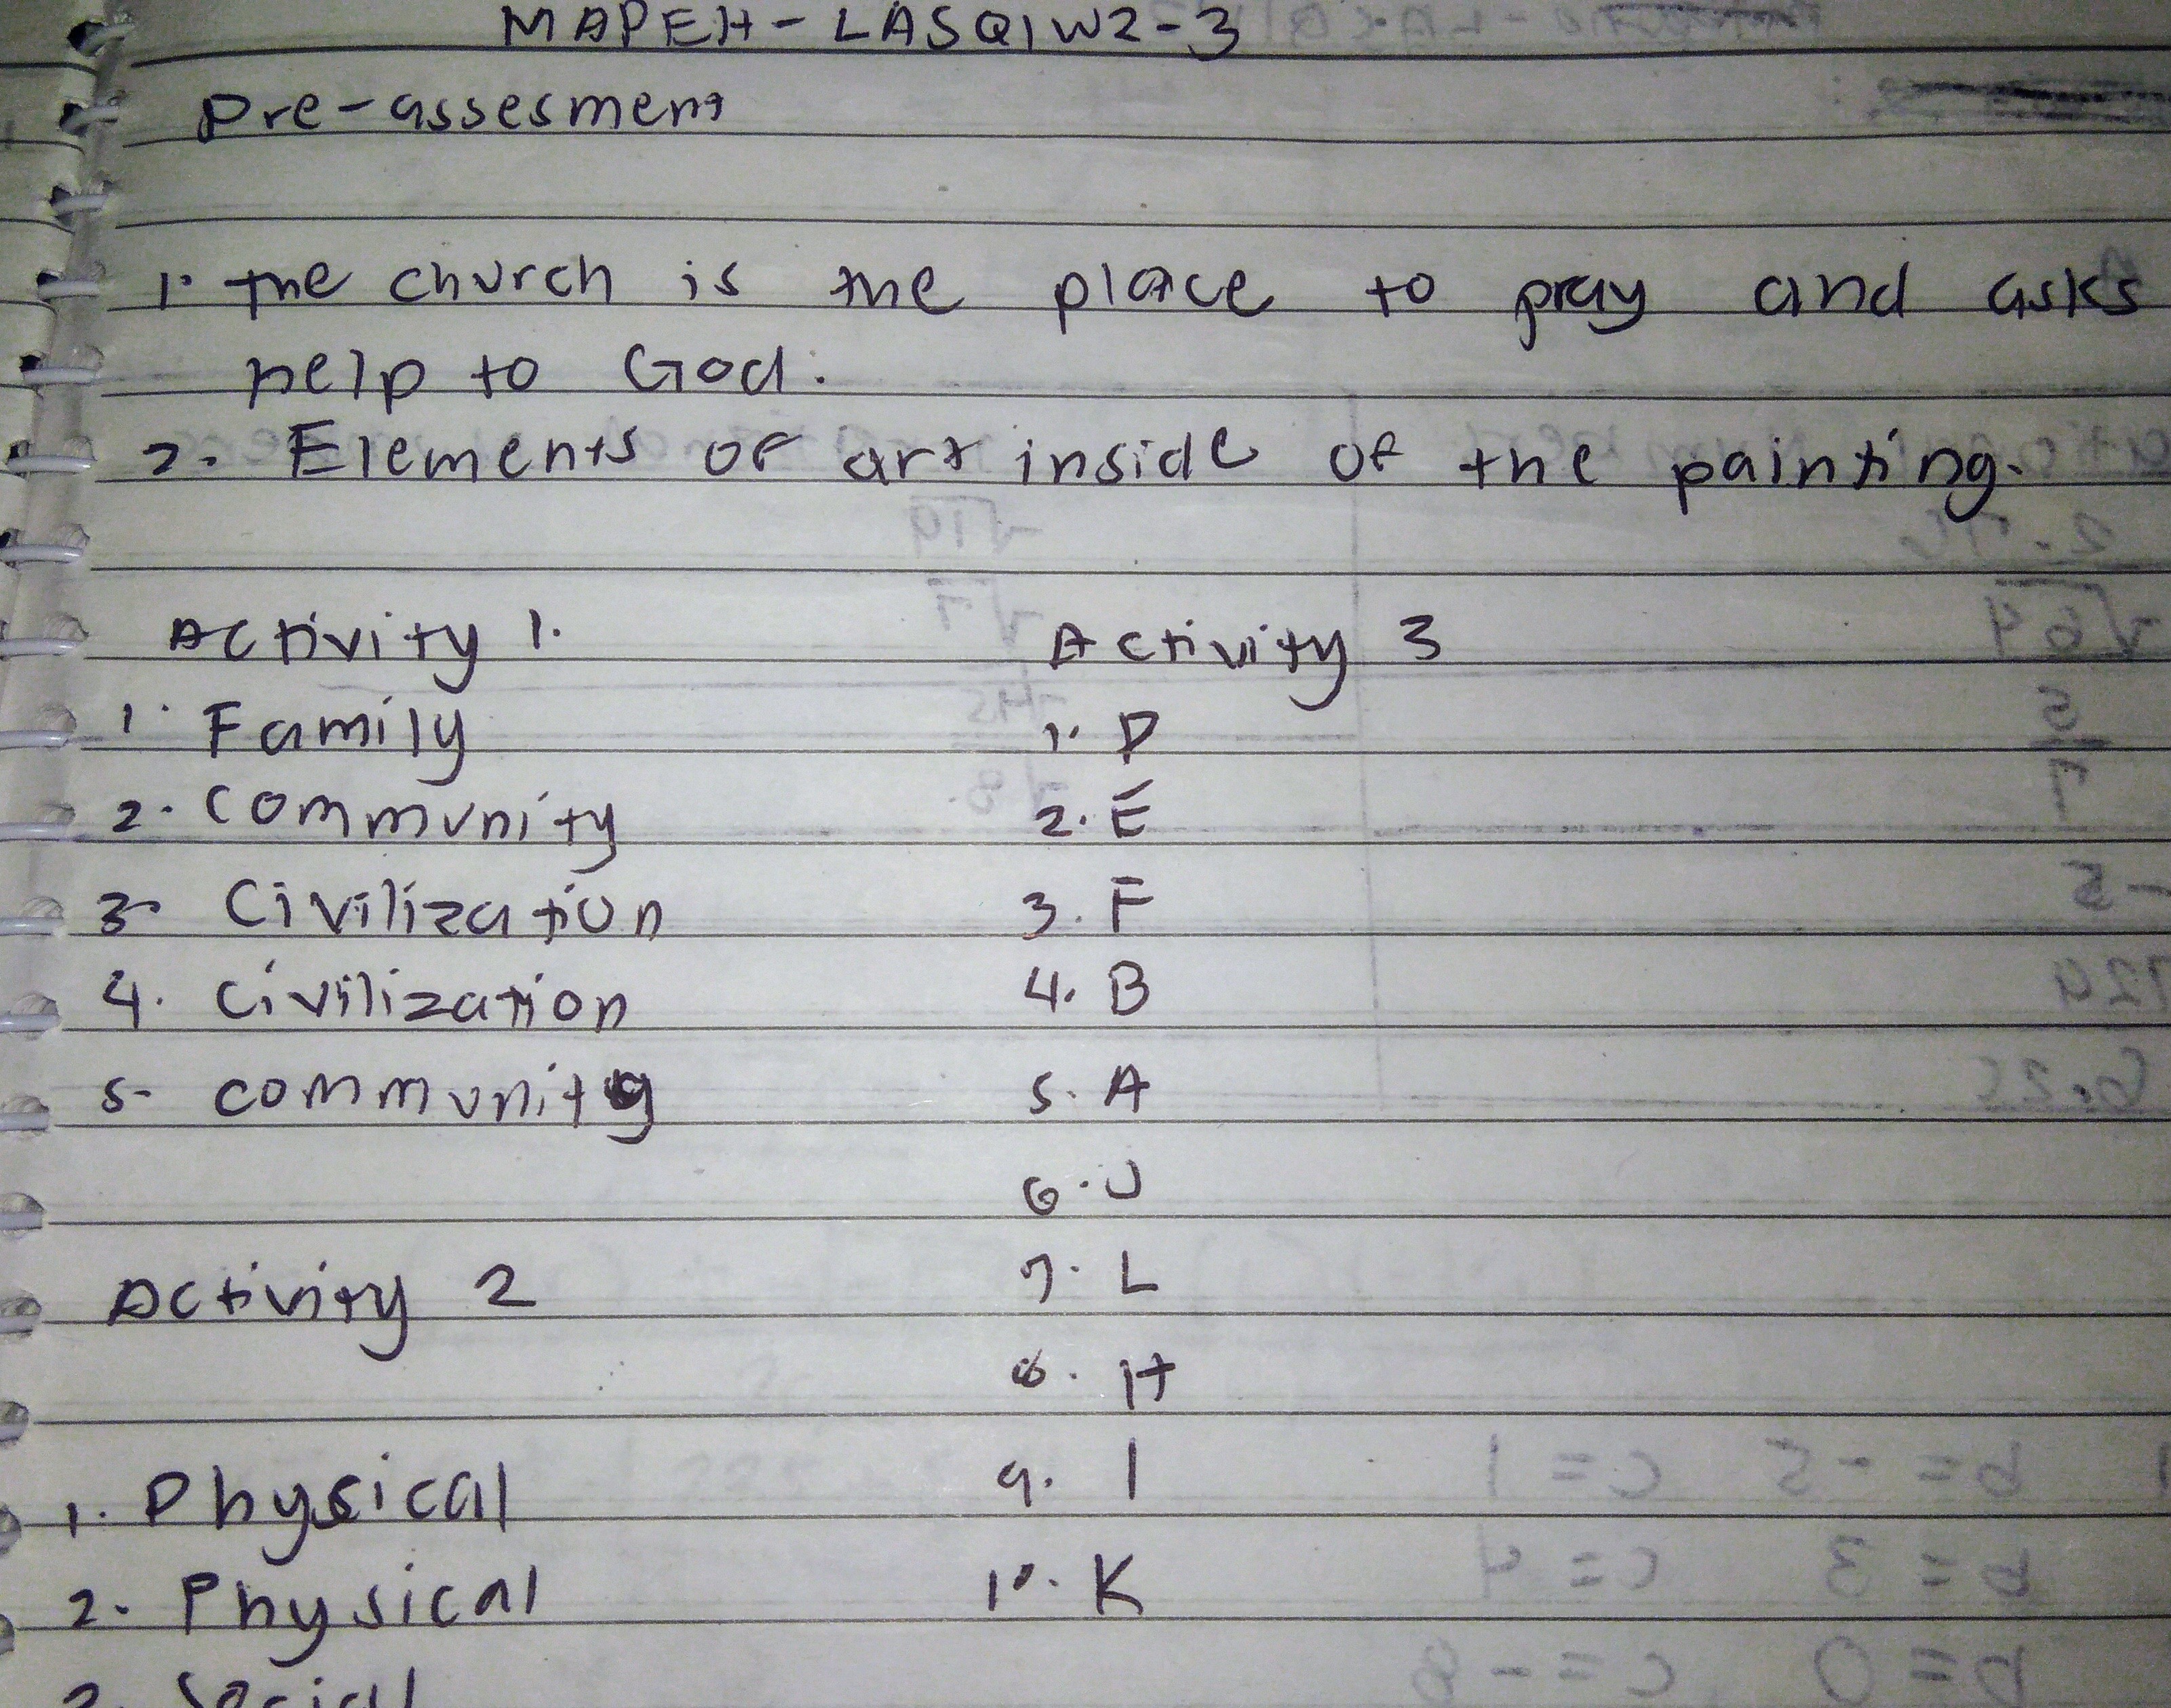 MAPEH - LASQ1W2-3
Pre-assesment
1. The church is the place to pray and asks
help to God.
2. Elements of art inside of the painting.
Activity 1.
1. Family
2. Community
3. Civilization
4. Civilization
5. community
Activity 2
1. Physical
2. Physical
3. Social
Activity 3
1. D
2. E
3. F
4. B
5. A
6. J
7. L
8. H
9. I
10. K